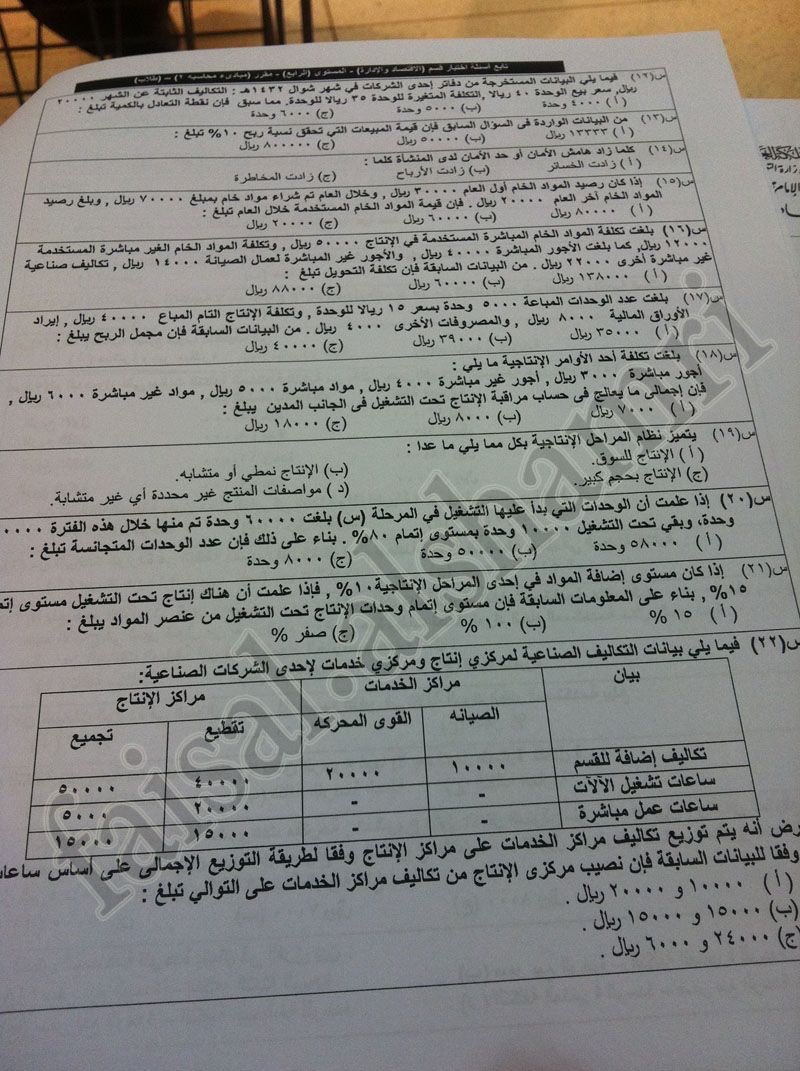 تابع أسئلة اختبار قسم (الاقتصاد والإدارة) - المستوى (الرابع) - مقرر (مبادىء محاسبه ٢) - (طلاب)
س(١٢) فيما يلي البيانات المستخرجة من دفاتر إحدى الشركات في شهر شوال ١٤٣٢هـ : التكاليف الثابتة عن الشهر ٢٠٠٠٠
ريال, سعر بيع الوحدة ٤٠ ريالا , التكلفة المتغيرة للوحدة ٣٥ ريالا للوحدة. مما سبق فإن نقطة التعادل بالكمية تبلغ :
(أ) ٤٠٠٠ وحدة (ب) ٥٠٠٠ وحدة (ج) ٦٠٠٠ وحدة
س(١٣) من البيانات الواردة في السؤال السابق فإن قيمة المبيعات التي تحقق نسبة ربح ١٠% تبلغ :
(أ) ١٣٣٣٣ ريال (ب) ٥٠٠٠٠ ريال (ج) ٨٠٠٠٠٠ ريال
س(١٤) كلما زاد هامش الأمان أو حد الأمان لدى المنشأة كلما :
(أ) زادت الخسائر (ب) زادت الأرباح (ج) زادت المخاطرة
س(١٥) إذا كان رصيد المواد الخام أول العام ٣٠٠٠٠ ريال , وخلال العام تم شراء مواد خام بمبلغ ٧٠٠٠٠ ريال , وبلغ رصيد
المواد الخام آخر العام ٢٠٠٠٠ ريال . فإن قيمة المواد الخام المستخدمة خلال العام تبلغ :
(أ) ٨٠٠٠٠ ريال (ب) ٦٠٠٠٠ ريال (ج) ٢٠٠٠٠ ريال
س(١٦) بلغت تكلفة المواد الخام المباشرة المستخدمة في الإنتاج ٥٠٠٠٠ ريال , وتكلفة المواد الخام الغير مباشرة المستخدمة
١٢٠٠٠ ريال, كما بلغت الأجور المباشرة ٤٠٠٠٠ ريال , والأجور غير المباشرة لعمال الصيانة ١٤٠٠٠ ريال , تكاليف صناعية
غير مباشرة أخرى ٢٢٠٠٠ ريال . من البيانات السابقة فإن تكلفة التحويل تبلغ :
(أ) ١٣٨٠٠٠ ريال (ب) ٦٠٠٠٠ ريال (ج) ٨٨٠٠٠ ريال
س(١٧) بلغت عدد الوحدات المباعة ٥٠٠٠ وحدة بسعر ١٥ ريالا للوحدة , وتكلفة الإنتاج التام المباع ٤٠٠٠٠ ريال , إيراد
الأوراق المالية ٨٠٠٠ ريال , والمصروفات الأخرى ٤٠٠٠ ريال . من البيانات السابقة فإن مجمل الربح يبلغ :
(أ) ٣٥٠٠٠ ريال (ب) ٣٩٠٠٠ ريال (ج) ٤٠٠٠٠ ريال
س(١٨) بلغت تكلفة أحد الأوامر الإنتاجية ما يلي :
أجور مباشرة ٣٠٠٠ ريال , أجور غير مباشرة ٤٠٠٠ ريال , مواد مباشرة ٥٠٠٠ ريال , مواد غير مباشرة ٦٠٠٠ ريال ,
فإن إجمالي ما يعالج في حساب مراقبة الإنتاج تحت التشغيل في الجانب المدين يبلغ :
(أ) ٧٠٠٠ ريال (ب) ٨٠٠٠ ريال (ج) ١٨٠٠٠ ريال
س(١٩) يتميز نظام المراحل الإنتاجية بكل مما يلي ما عدا :
(أ) الإنتاج للسوق. (ب) الإنتاج نمطي أو متشابه.
(ج) الإنتاج بحجم كبير. (د) مواصفات المنتج غير محددة أي غير متشابة.
س(٢٠) إذا علمت أن الوحدات التي بدأ عليها التشغيل في المرحلة (س) بلغت ٦٠٠٠٠ وحدة تم منها خلال هذه الفترة
وحدة, وبقي تحت التشغيل ١٠٠٠٠ وحدة بمستوى إتمام ٨٠% . بناء على ذلك فإن عدد الوحدات المتجانسة تبلغ :
(أ) ٥٨٠٠٠ وحدة (ب) ٥٠٠٠٠ وحدة (ج) ٨٠٠٠ وحدة
س(٢١) إذا كان مستوى إضافة المواد في إحدى المراحل الإنتاجية١٠% , فإذا علمت أن هناك إنتاج تحت التشغيل مستوى
١٥% , بناء على المعلومات السابقة فإن مستوى إتمام وحدات الإنتاج تحت التشغيل من عنصر المواد يبلغ :
(أ) ١٥ % (ب) ١٠٠ % (ج) صفر %
س(٢٢) فيما يلي بيانات التكاليف الصناعية لمركزي إنتاج ومركزي خدمات لإحدى الشركات الصناعية:
بيان مراكز الخدمات مراكز الإنتاج
الصيانه القوى المحركه تقطيع تجميع
تكاليف إضافة للقسم ١٠٠٠٠ ٢٠٠٠٠ ٤٠٠٠٠ ٥٠٠٠٠
ساعات تشغيل الآلآت - - ٢٠٠٠٠ ٥٠٠٠
ساعات عمل مباشرة - - ١٥٠٠٠ ١٥٠٠٠
أنه يتم توزيع تكاليف مراكز الخدمات على مراكز الإنتاج وفقا لطريقة التوزيع الإجمالي على أساس
وفقا للبيانات السابقة فإن نصيب مركزى الإنتاج من تكاليف مراكز الخدمات على التوالي تبلغ :
(أ) ١٠٠٠٠ و ٢٠٠٠٠ ريال .
(ب) ١٥٠٠٠ و ١٥٠٠٠ ريال .
(ج) ٢٤٠٠٠ و ٦٠٠٠ ريال .
faisal.alshamri